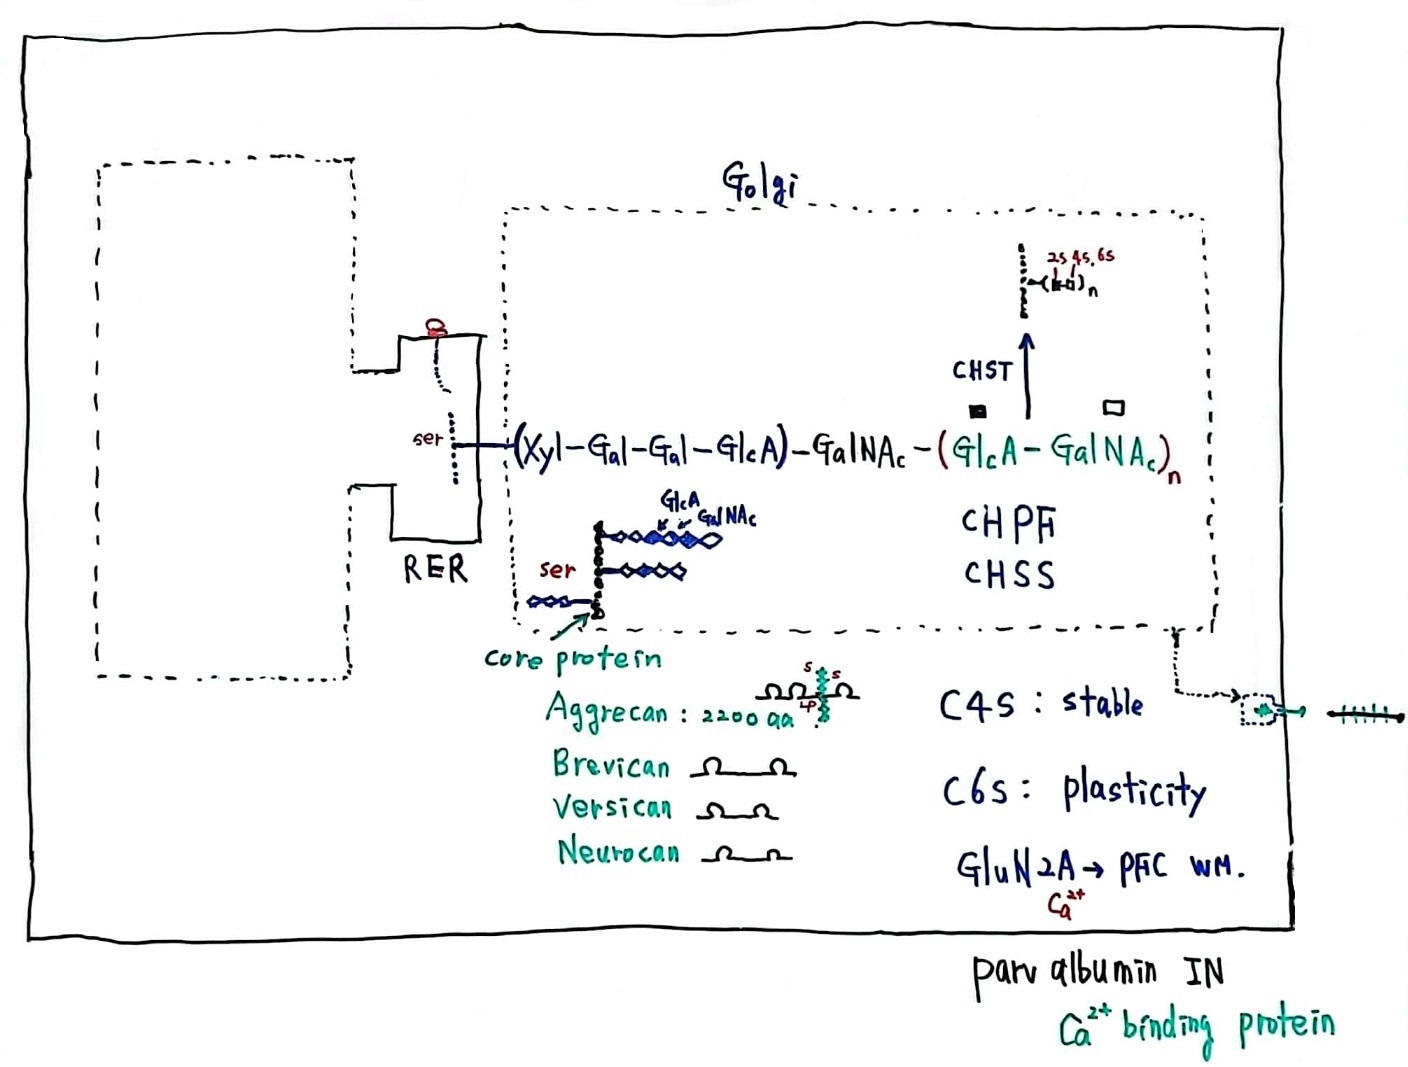 Golgi
2S 4S, 6S
( )n
CHST
ser
(Xyl-Gal-Gal-GlcA)-GalNAc-(GlcA-GalNAc)n
RER
GlcA
GalNAc
ser
CHPF
CHSS
core protein
S S
LP
Aggrecan : 2200 aa
Brevican
Versican
Neurocan
C4S : stable
C6S : plasticity
GluN2A → PFC WM.
Ca²⁺
parvalbumin IN
Ca²⁺ binding protein